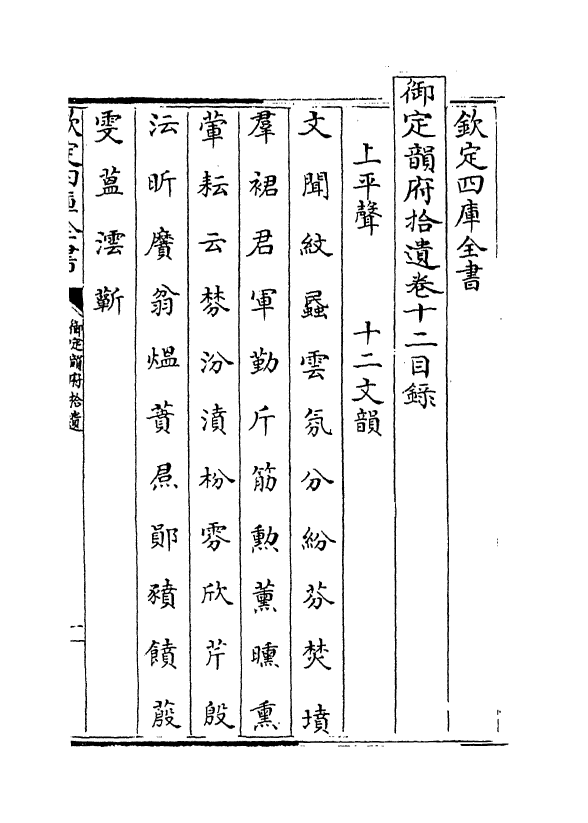 欽定四庫全書
御定韻府拾遺卷十二目錄
上平聲 十二文韻
文聞紋蟁雲氛分紛芬焚墳
羣裙君軍勤斤筋勲薰曛熏
葷耘云棼汾濆枌雰欣芹殷
沄昕黂翁熅蕡焄鄖豶饙蒑
雯蒀澐蘄
欽定四庫全書 御定韻府拾遺 一